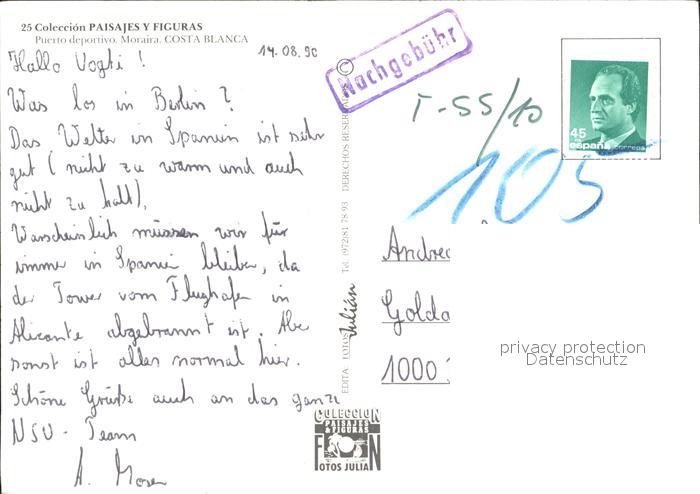 25 Colección PAISAJES Y FIGURAS
Puerto deportivo. Moraira. COSTA BLANCA
14.08.90
Hallo Vogti!
Was los in Berlin?
Das Wetter in Spanien ist sehr
gut (nicht zu warm und auch
nicht zu kalt),
Warscheinlich müssen wir für
immer in Spanien bleiben, da
der Tower vom Flughafen in
Alicante abgebrannt ist. Aber
sonst ist alles normal hier.
Schöne Grüße auch an das ganze
NSU-Team
A. Moser
EDITA FOTOS Julián Tel. (972) 81 78 93 DERECHOS RESERVADOS ©
COLECCION
PAISAJES
& FIGURAS
FOTOS JULIAN
Nachgebühr
T-55/10
105
45
españa
correos
Andrea
Golda
1000
privacy protection
Datenschutz